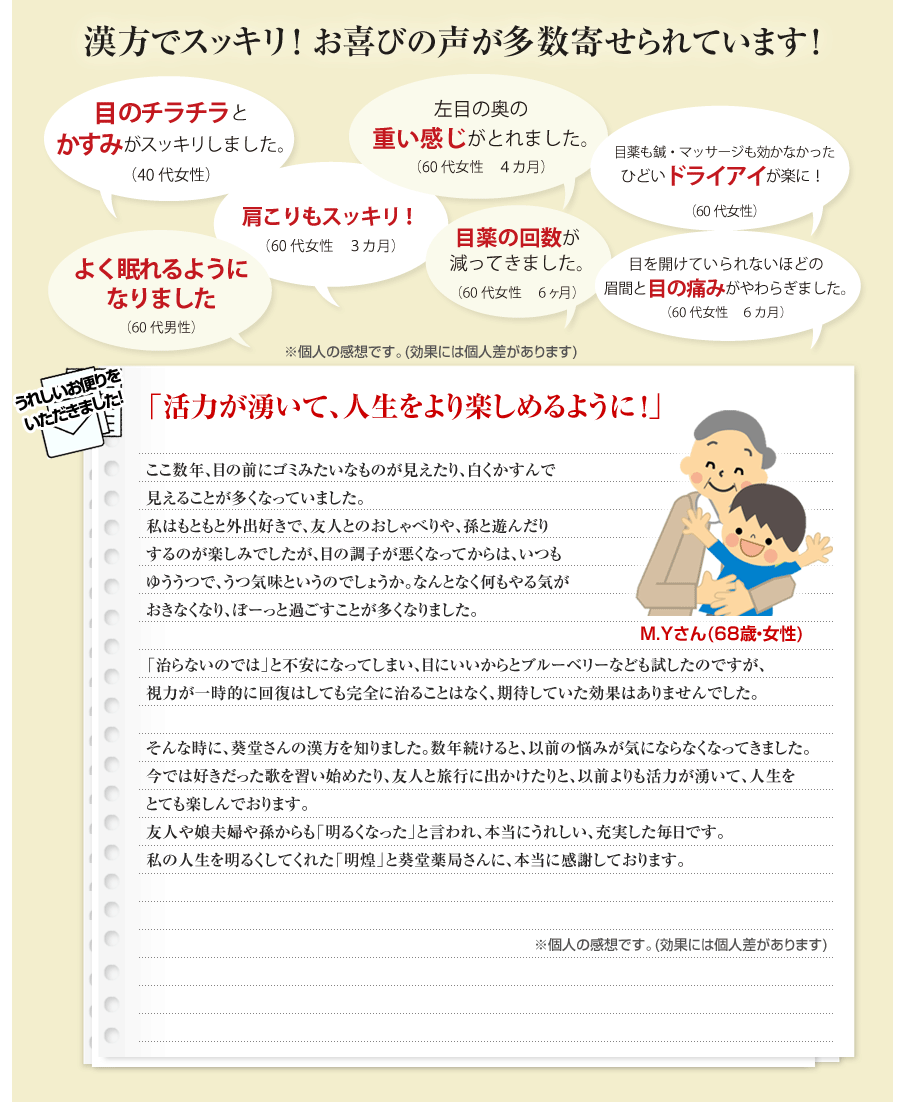 漢方でスッキリ！お喜びの声が多数寄せられています！
目のチラチラと
かすみがスッキリしました。
（40代女性）
左目の奥の
重い感じがとれました。
（60代女性　4カ月）
目薬も鍼・マッサージも効かなかった
ひどいドライアイが楽に！
（60代女性）
肩こりもスッキリ！
（60代女性　3カ月）
目薬の回数が
減ってきました。
（60代女性　6ヶ月）
よく眠れるように
なりました
（60代男性）
目を開けていられないほどの
眉間と目の痛みがやわらぎました。
（60代女性　6カ月）
※個人の感想です。(効果には個人差があります)
うれしいお便りを
いただきました!
「活力が湧いて、人生をより楽しめるように！」
ここ数年、目の前にゴミみたいなものが見えたり、白くかすんで
見えることが多くなっていました。
私はもともと外出好きで、友人とのおしゃべりや、孫と遊んだり
するのが楽しみでしたが、目の調子が悪くなってからは、いつも
ゆううつで、うつ気味というのでしょうか。なんとなく何もやる気が
おきなくなり、ぼーっと過ごすことが多くなりました。
M.Yさん(68歳・女性)
「治らないのでは」と不安になってしまい、目にいいからとブルーベリーなども試したのですが、
視力が一時的に回復はしても完全に治ることはなく、期待していた効果はありませんでした。
そんな時に、葵堂さんの漢方を知りました。数年続けると、以前の悩みが気にならなくなってきました。
今では好きだった歌を習い始めたり、友人と旅行に出かけたりと、以前よりも活力が湧いて、人生を
とても楽しんでおります。
友人や娘夫婦や孫からも「明るくなった」と言われ、本当にうれしい、充実した毎日です。
私の人生を明るくしてくれた「明煌」と葵堂薬局さんに、本当に感謝しております。
※個人の感想です。(効果には個人差があります)